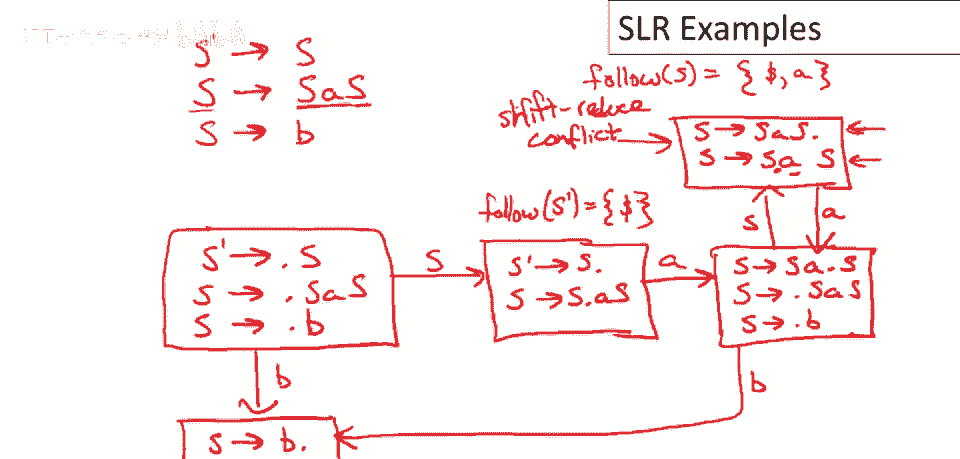 SLR Examples
S' → S
S → SaS
S → b
follow(S) = { $, a }
shift-reduce
conflict
S → SaS.
S → S.a S
S
a
follow(S') = { $ }
S' → . S
S → . SaS
S → . b
S
S' → S.
S → S.aS
a
S → Sa.S
S → .SaS
S → .b
b
b
S → b.